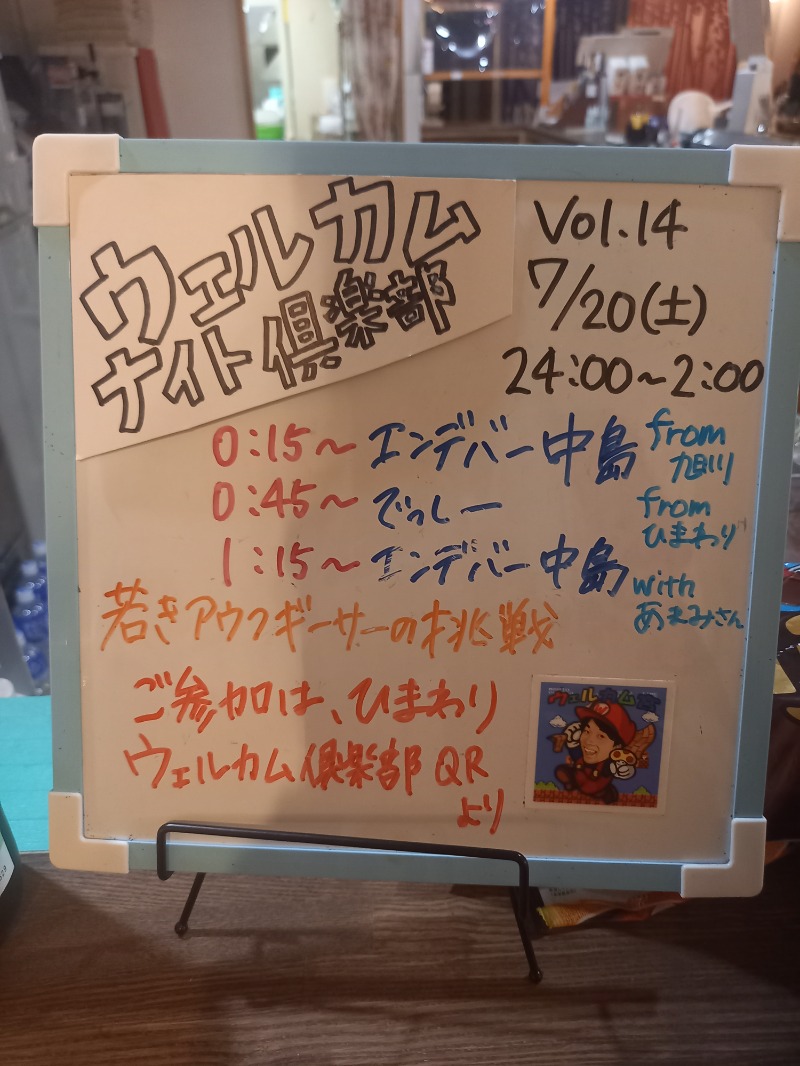 ウェルカム
ナイト倶楽部
Vol.14
7/20(土)
24:00~2:00
0:15~ エンデバー中島 from旭川
0:45~ でっしー fromひまわり
1:15~ エンデバー中島 withあまみさん
若きアウフギーサーの挑戦
ご参加は、ひまわり
ウェルカム倶楽部QR
より
ウェルカム